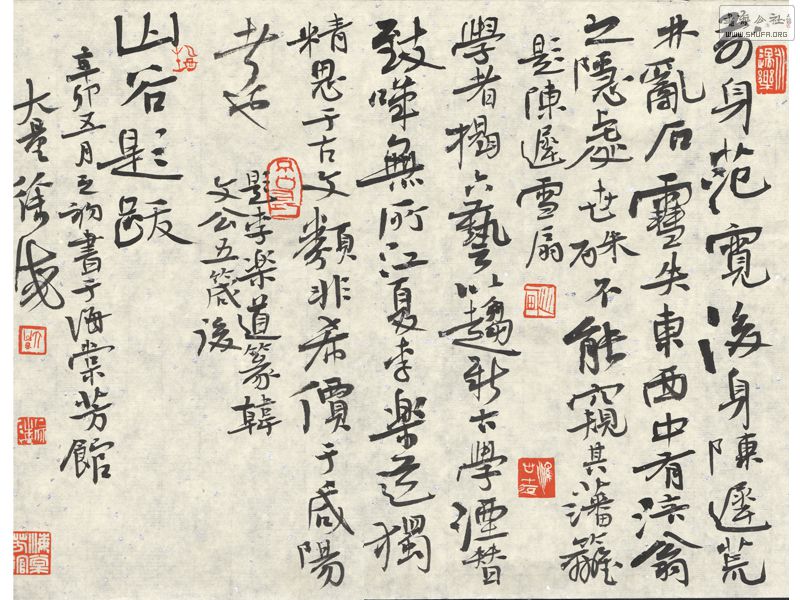 前身范寬後身陳遲荒
井亂石雪失東西中有涪翁
之隱處世硃不能窺其藩籬
題陳遲雪扇
學者揭六藝以趨新古學湮替
鼓噪無所江夏李樂道獨
精思于古文類非希價于咸陽
者也
題李樂道篆韓
文公五箴後
山谷題跋
辛卯五月 書于海棠芳館
大
書法公社
WWW.SHUFA.ORG